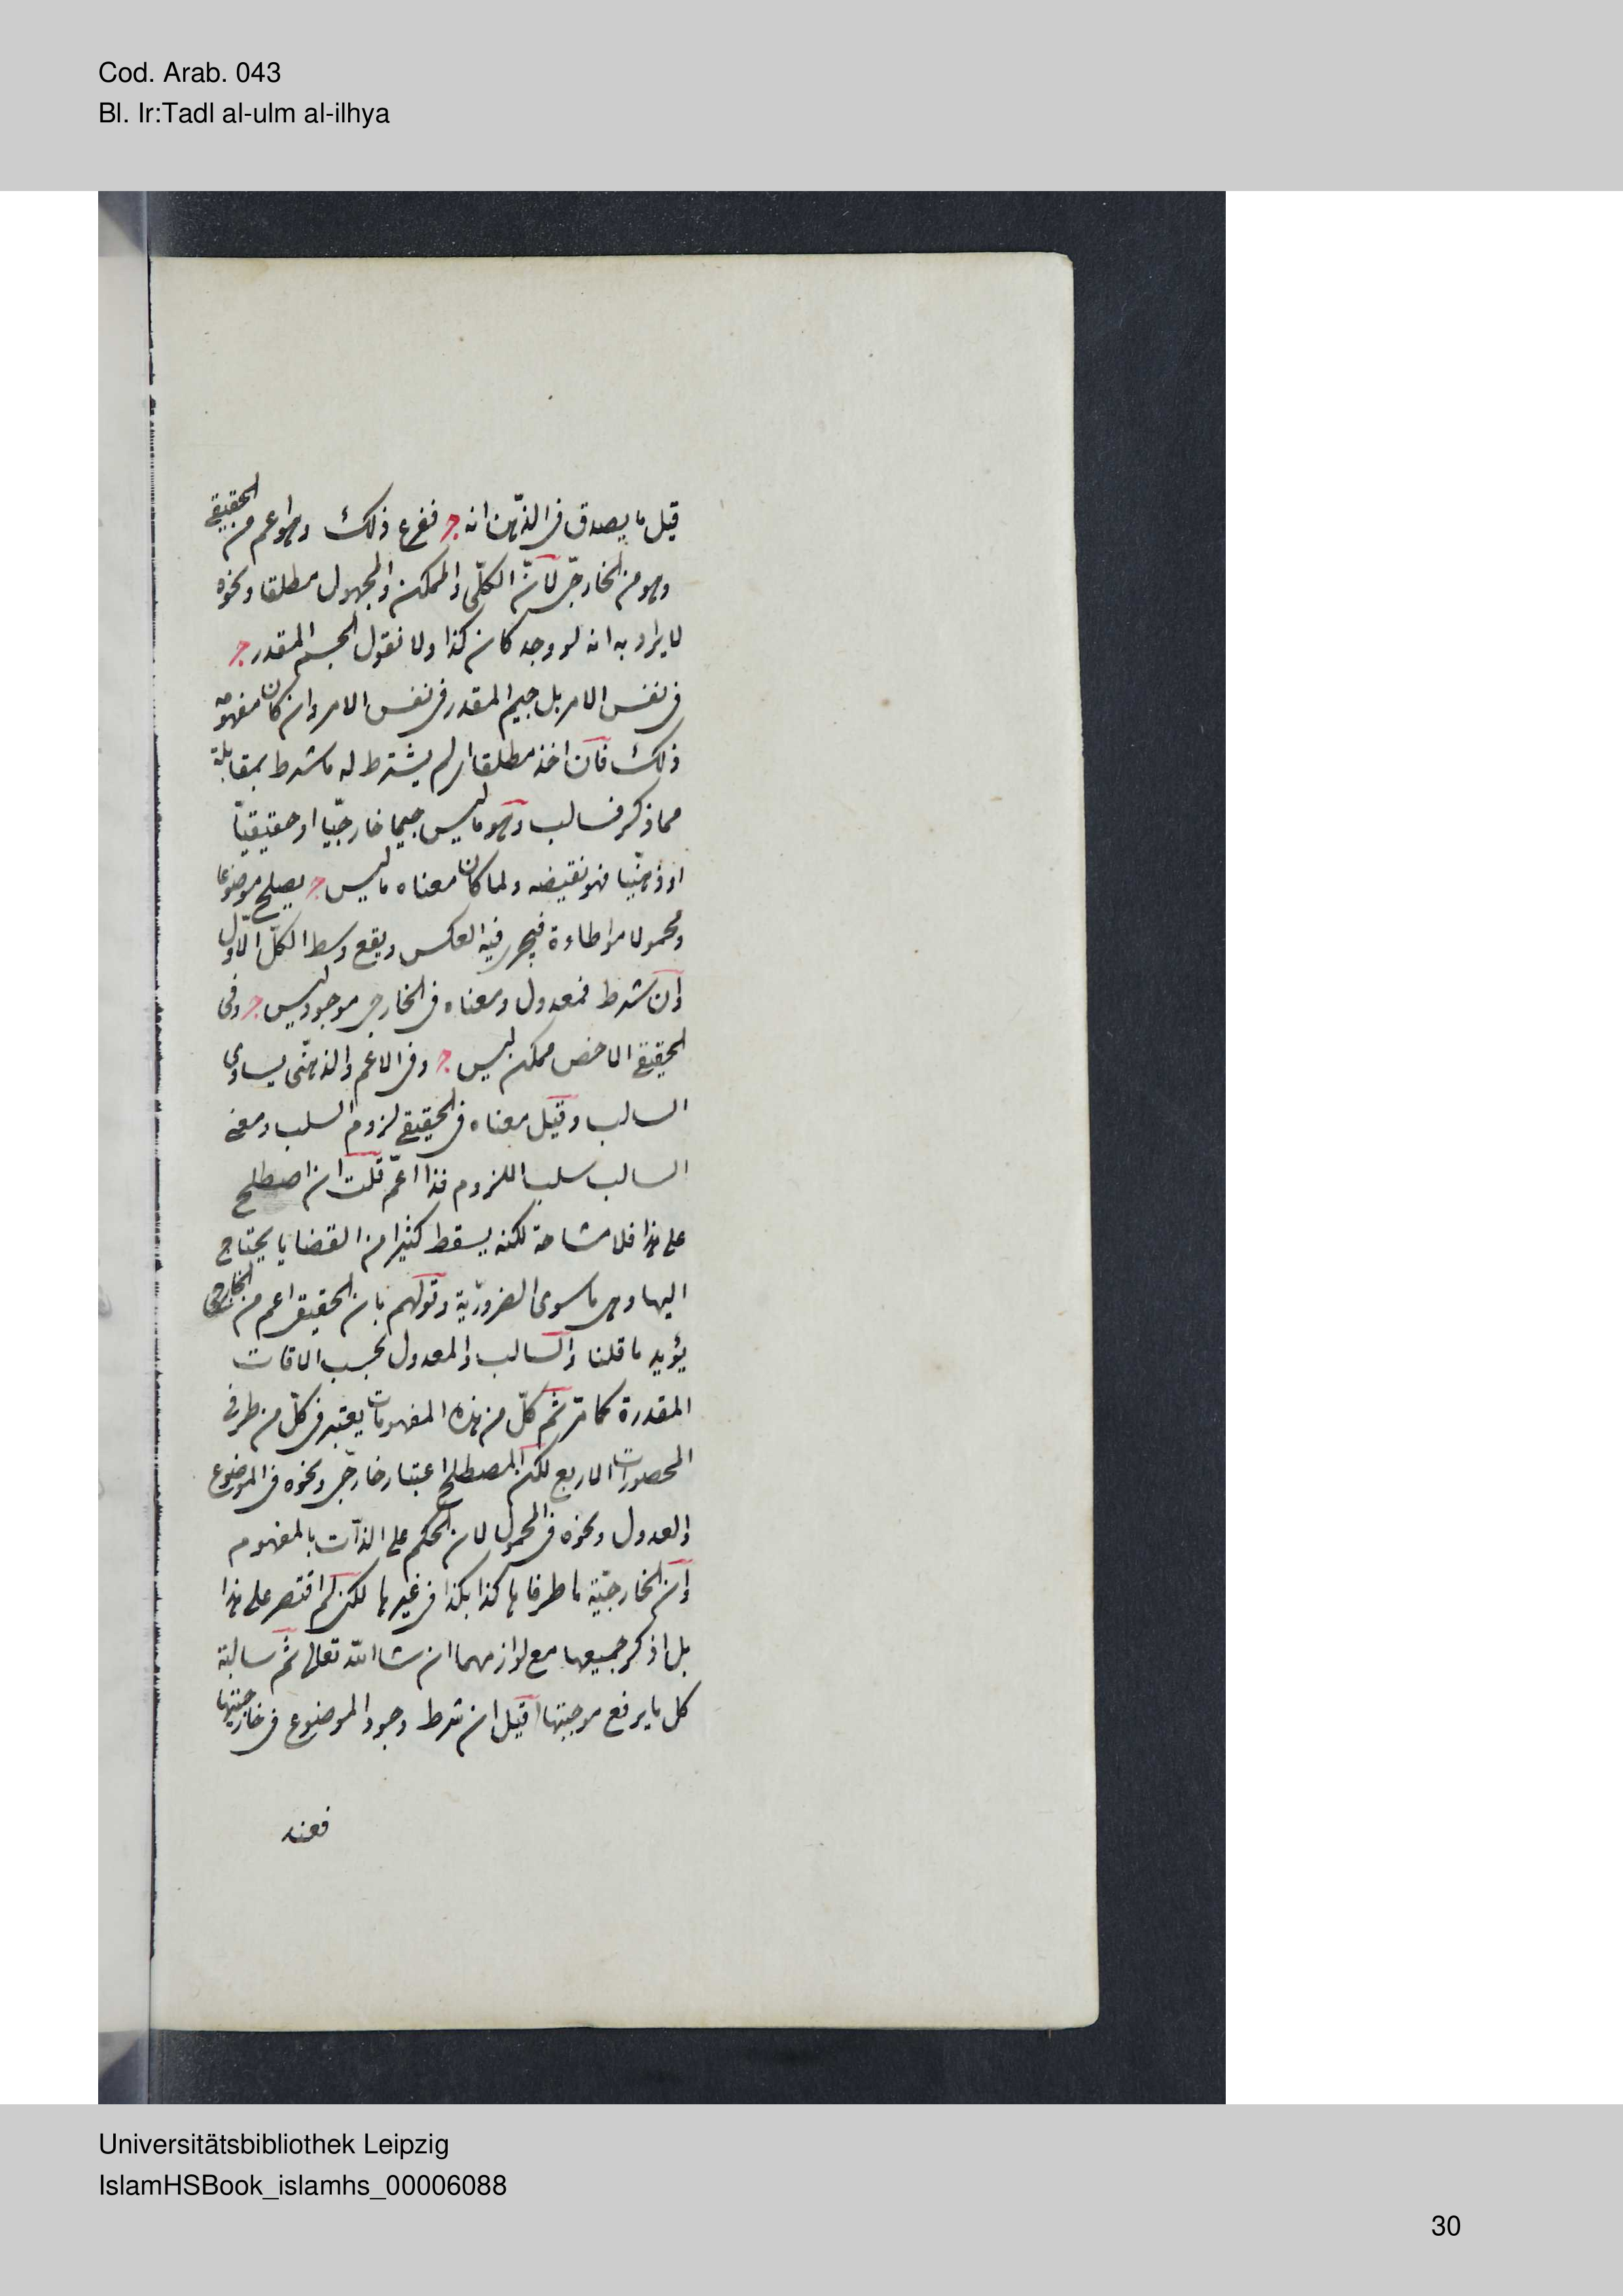 Cod. Arab. 043
Bl. Ir:Tadl al-ulm al-ilhya
قيل ما يصدق فى الذهن انه ج ففرع ذلك وهو اعم من الحقيقى
وهو من الخارجى لان الكلى والممكن والمجهول مطلقا ونحوه
لا يراد به انه لو وجد كان كذا ولا نقول الجسم المقدر ج
فى نفس الامر بل جيم المقدر فى نفس الامر وان كان مفهومه
ذلك فان اخذ مطلقا اى لم يشترط له ما شرط بمقابلة
مما ذكر فسالب وهو ما ليس جيما خارجيا او حقيقيا
او ذهنيا فهو نقيضه ولما كان معناه ما ليس ج يصلح موضوعا
ومحمولا مواطاءة فيجرى فيه العكس ويقع وسط الكل الاول
وان شرط فمعدول ومعناه فى الخارجى موجود ليس ج وفى
الحقيقى الاخص ممكن ليس ج وفى الاعم والذهنى يساوى
السالب وقيل معناه فى الحقيقى لزوم السلب ومعنى
السالب سلب اللزوم فذا اعم قلت ان اصطلح
على هذا فلا مشاحة لكنه يسقط كثيرا من القضايا يحتاج
اليها وهى ما سوى الضرورية وقولهم بان الحقيقى اعم من الخارجى
يؤيد ما قلنا والسالب والمعدول بحسب الاقات
المقدرة كما مر ثم كل من هذه المفهومات يعتبر فى كل من طرفى
المحصورات الاربع لكن المصطلح اعتبار خارجى ونحوه فى الموضوع
والعدول ونحوه فى المحمول لان الحكم على الذات بالمفهوم
وان الخارجية ما طرفاها كذا بكذا فى غيرها لكن لم اقتصر على هذا
بل اذكر جميعها مع لوازمهما ان شا الله تعالى ثم سالبة
كل ما يرفع موجبتها قيل ان شرط وجود الموضوع فى خارجيتها
فعند
Universitätsbibliothek Leipzig
IslamHSBook_islamhs_00006088
30